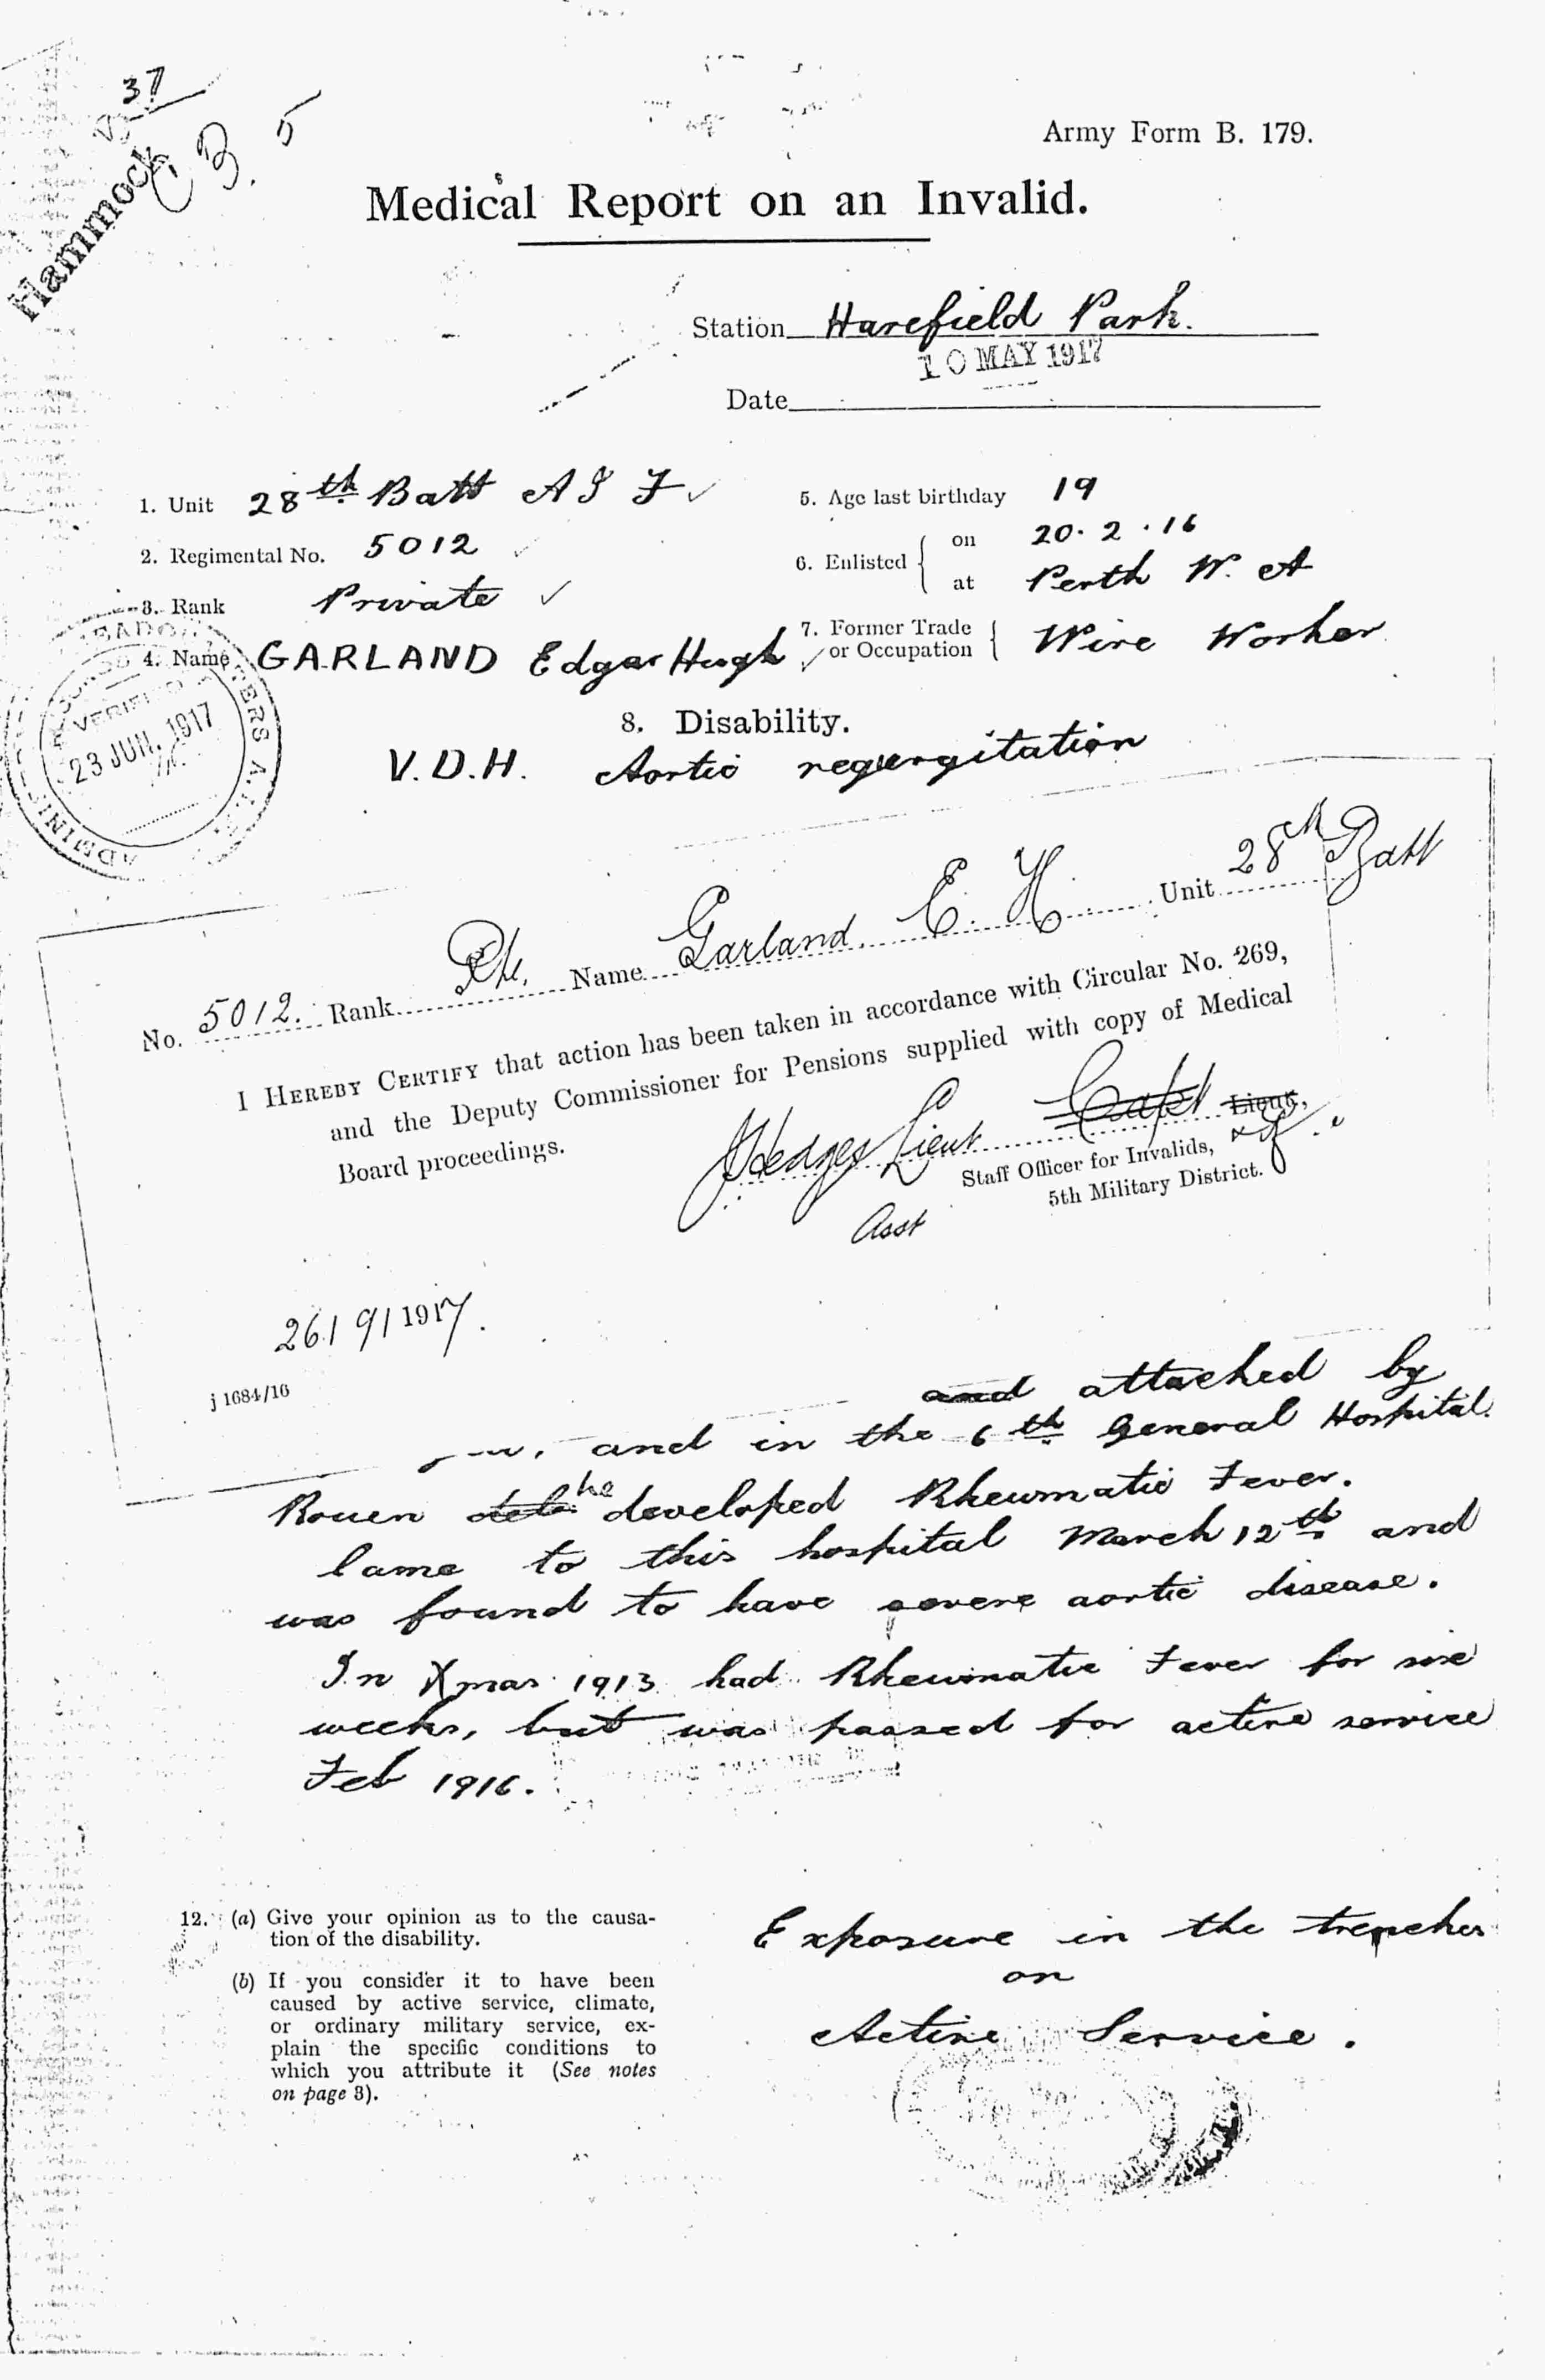 37
Hammock
C 3. 5
Army Form B. 179.
Medical Report on an Invalid.
Station Harefield Park.
10 MAY 1917
Date
1. Unit 28th Batt A I F
2. Regimental No. 5012
3. Rank Private
4. Name GARLAND Edgar Hugh
5. Age last birthday 19
6. Enlisted { on 20. 2. 16
at Perth W. A
7. Former Trade or Occupation { Wire Worker
VERIFIED
23 JUN. 1917
8. Disability.
V. D. H. Aortic regurgitation
No. 5012. Rank Pte. Name Garland. E. H. Unit 28th Batt
I HEREBY CERTIFY that action has been taken in accordance with Circular No. 269,
and the Deputy Commissioner for Pensions supplied with copy of Medical
Board proceedings.
Hedges Lieut Capt Lieut,
Asst
Staff Officer for Invalids,
5th Military District.
26/9/1917.
j 1684/16
and attached by
and in the 6th General Hospital.
Rouen he developed Rheumatic Fever.
Came to this hospital March 12th and
was found to have severe aortic disease.
In Xmas 1913 had Rheumatic Fever for six
weeks, but was passed for active service
Feb 1916.
12. (a) Give your opinion as to the causa-
tion of the disability.
Exposure in the trenches
on
(b) If you consider it to have been
caused by active service, climate,
or ordinary military service, ex-
plain the specific conditions to
which you attribute it (See notes
on page 3).
Active Service.